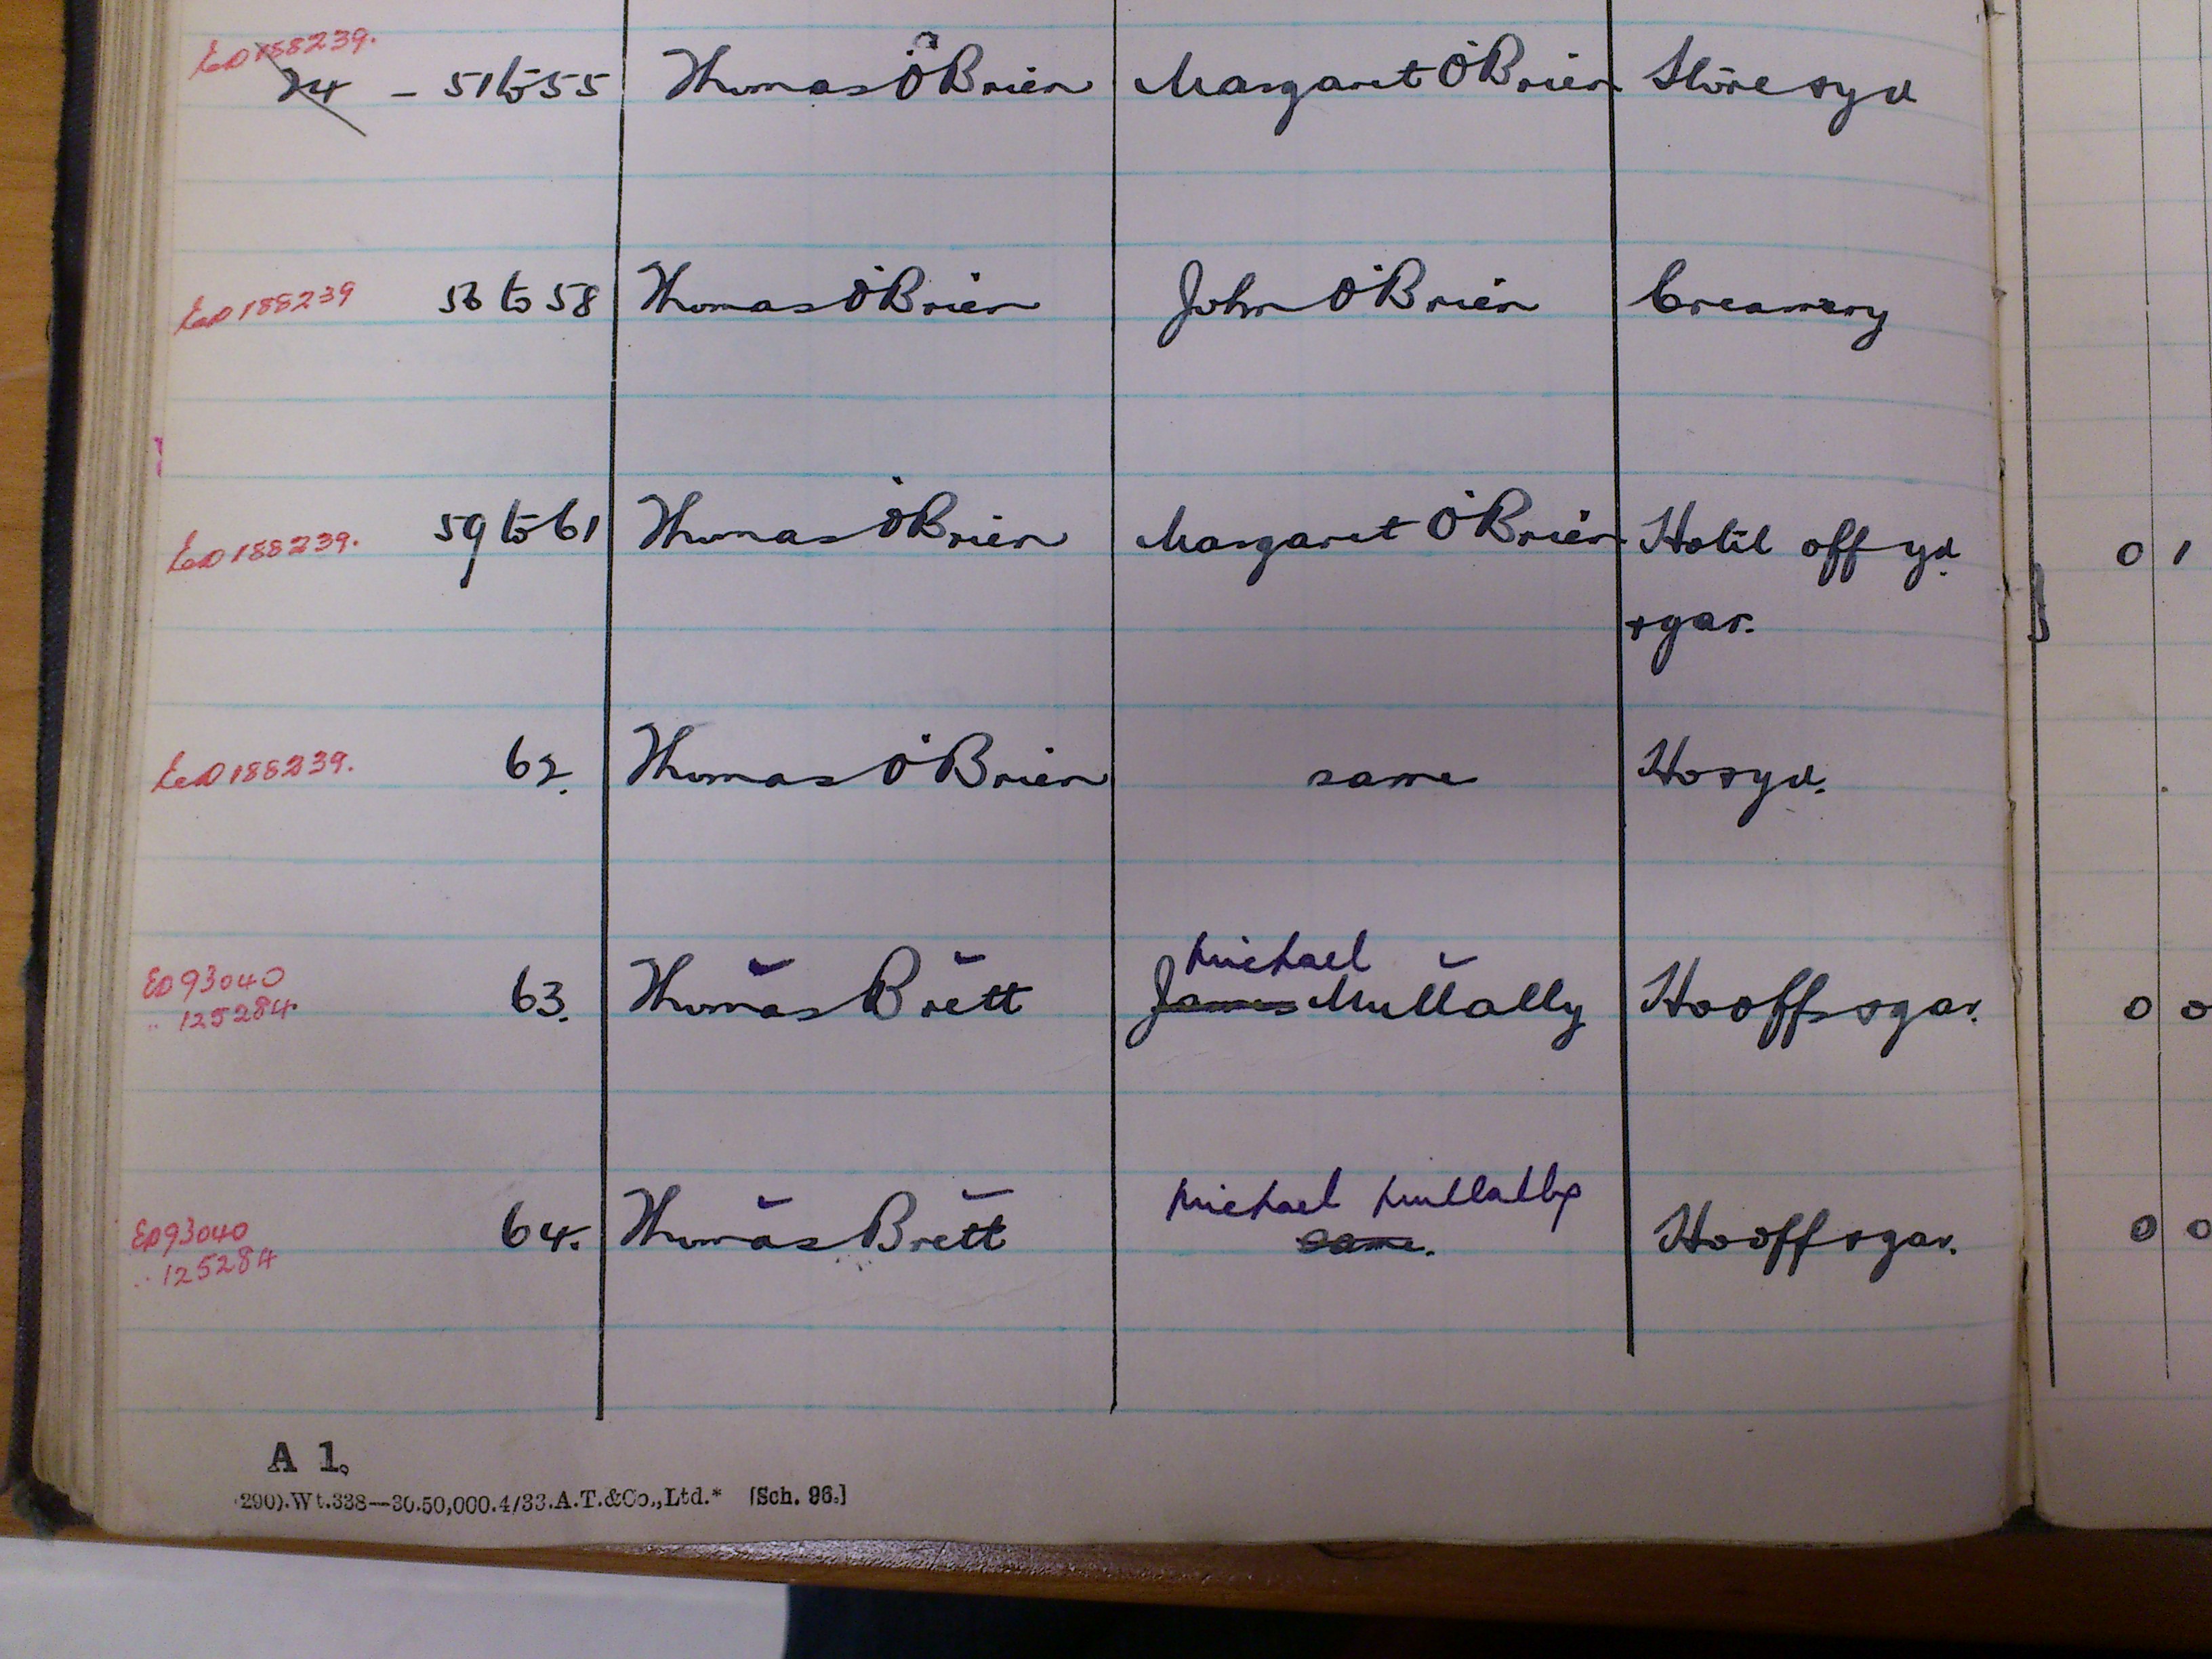 ED 188239.
24 - 51 to 55 Thomas O'Brien Margaret O'Brien Store & yd
ED 188239 56 to 58 Thomas O'Brien John O'Brien Creamery
ED 188239. 59 to 61 Thomas O'Brien Margaret O'Brien Hotel off yd. 0 1
& gar.
ED 188239. 62. Thomas O'Brien same Ho & yd.
Michael
ED 93040 63. Thomas Brett James Mullally Ho offs & gar. 0 0
" 125284
Michael Mullally
ED 93040 64. Thomas Brett same. Ho off & gar. 0 0
" 125284
A 1.
290).Wt.338—30.50,000.4/33.A.T.&Co.,Ltd.* [Sch. 96.]